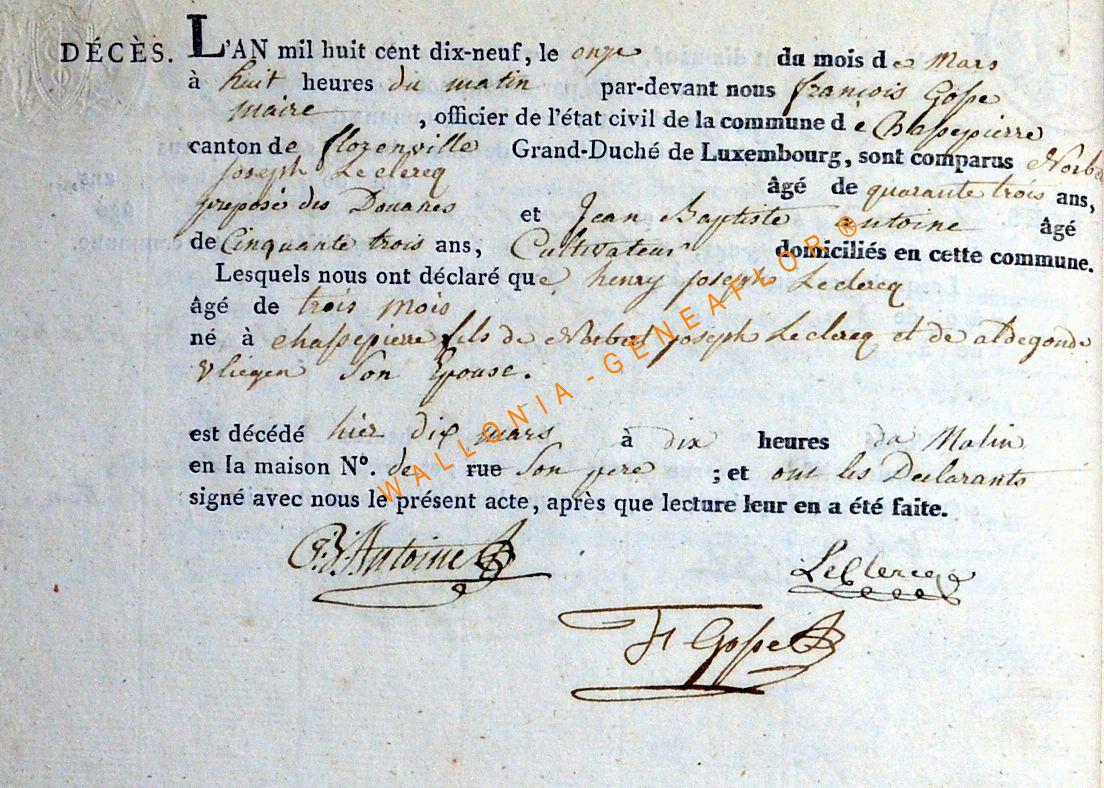 DÉCÈS. L'AN mil huit cent dix-neuf, le onze du mois de Mars
à huit heures du matin par-devant nous françois Gosse
maire , officier de l'état civil de la commune de Chassepierre
canton de florenville Grand-Duché de Luxembourg, sont comparus Norbert
joseph Leclercq âgé de quarante trois ans,
preposé des Douanes et Jean Baptiste antoine âgé
de Cinquante trois ans, Cultivateur domiciliés en cette commune.
Lesquels nous ont déclaré que henry joseph Leclercq
âgé de trois mois
né à chassepierre fils de Norbert joseph Leclercq et de aldegonde
vliegen Son Epouse.
est décédé hier dix mars à dix heures du Matin
en la maison N°. de rue Son pere ; et ont les Declarants
signé avec nous le présent acte, après que lecture leur en a été faite.
J.B. Antoine
LeClercq
F Gosse
WALLONIA-GENEAFLOR©